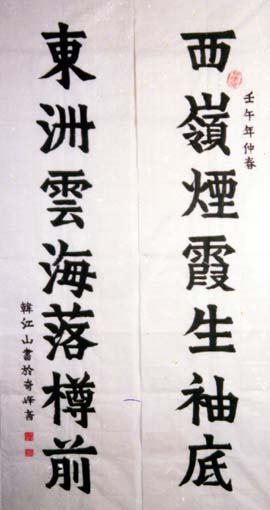 西嶺煙霞生袖底
壬午年仲春
東洲雲海落樽前
韓江山書於奇峰齋